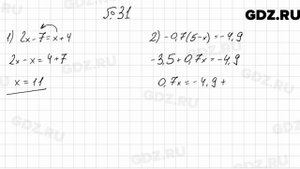 GDZ.RU
№31
1) 2x-7=x+4
2x-x=4+7
x=11
2) -0,7(5-x)=-4,9
-3,5+0,7x=-4,9
0,7x=-4,9+
GDZ.RU